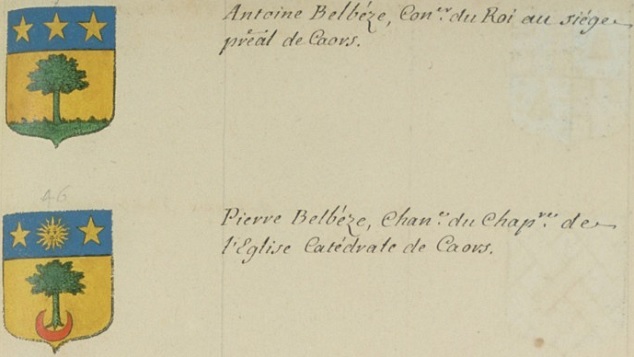 Antoine Belbéze, Con.er du Roi au siége
préal de Caors.
46
Pierre Belbéze, Chan.e du Chap.re de
l'Eglise Catédrale de Caors.